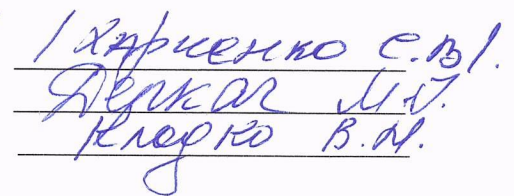 / Харченко С.В /.
Деркач М.О.
Кладко В.М.